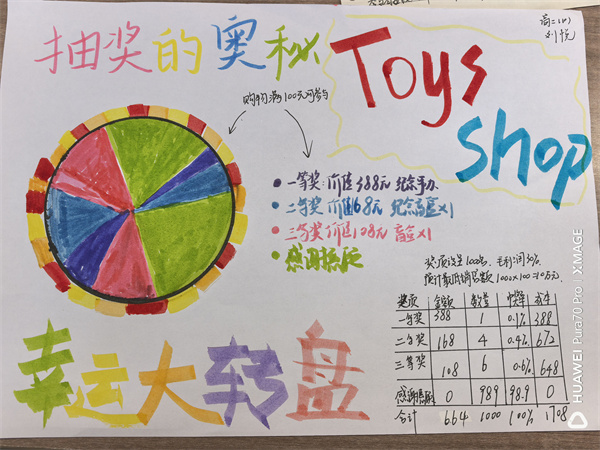 抽奖的奥秘
Toys
shop
购物满100元可参与
一等奖:价值388元 纪念手办
二等奖 价值168元 纪念盲盒x1
三等奖 价值108元 盲盒x1
感谢惠顾
奖项设置1000名,毛利润30%.
预计最低销售额 1000x100=10万元.
奖项 金额 数量 中奖率 成本
一等奖 388 1 0.1% 388
二等奖 168 4 0.4% 672
三等奖 108 6 0.6% 648
感谢惠顾 0 989 98.9 0
合计 664 1000 100% 1708
幸运大转盘
HUAWEI Pura70 Pro | XMAGE